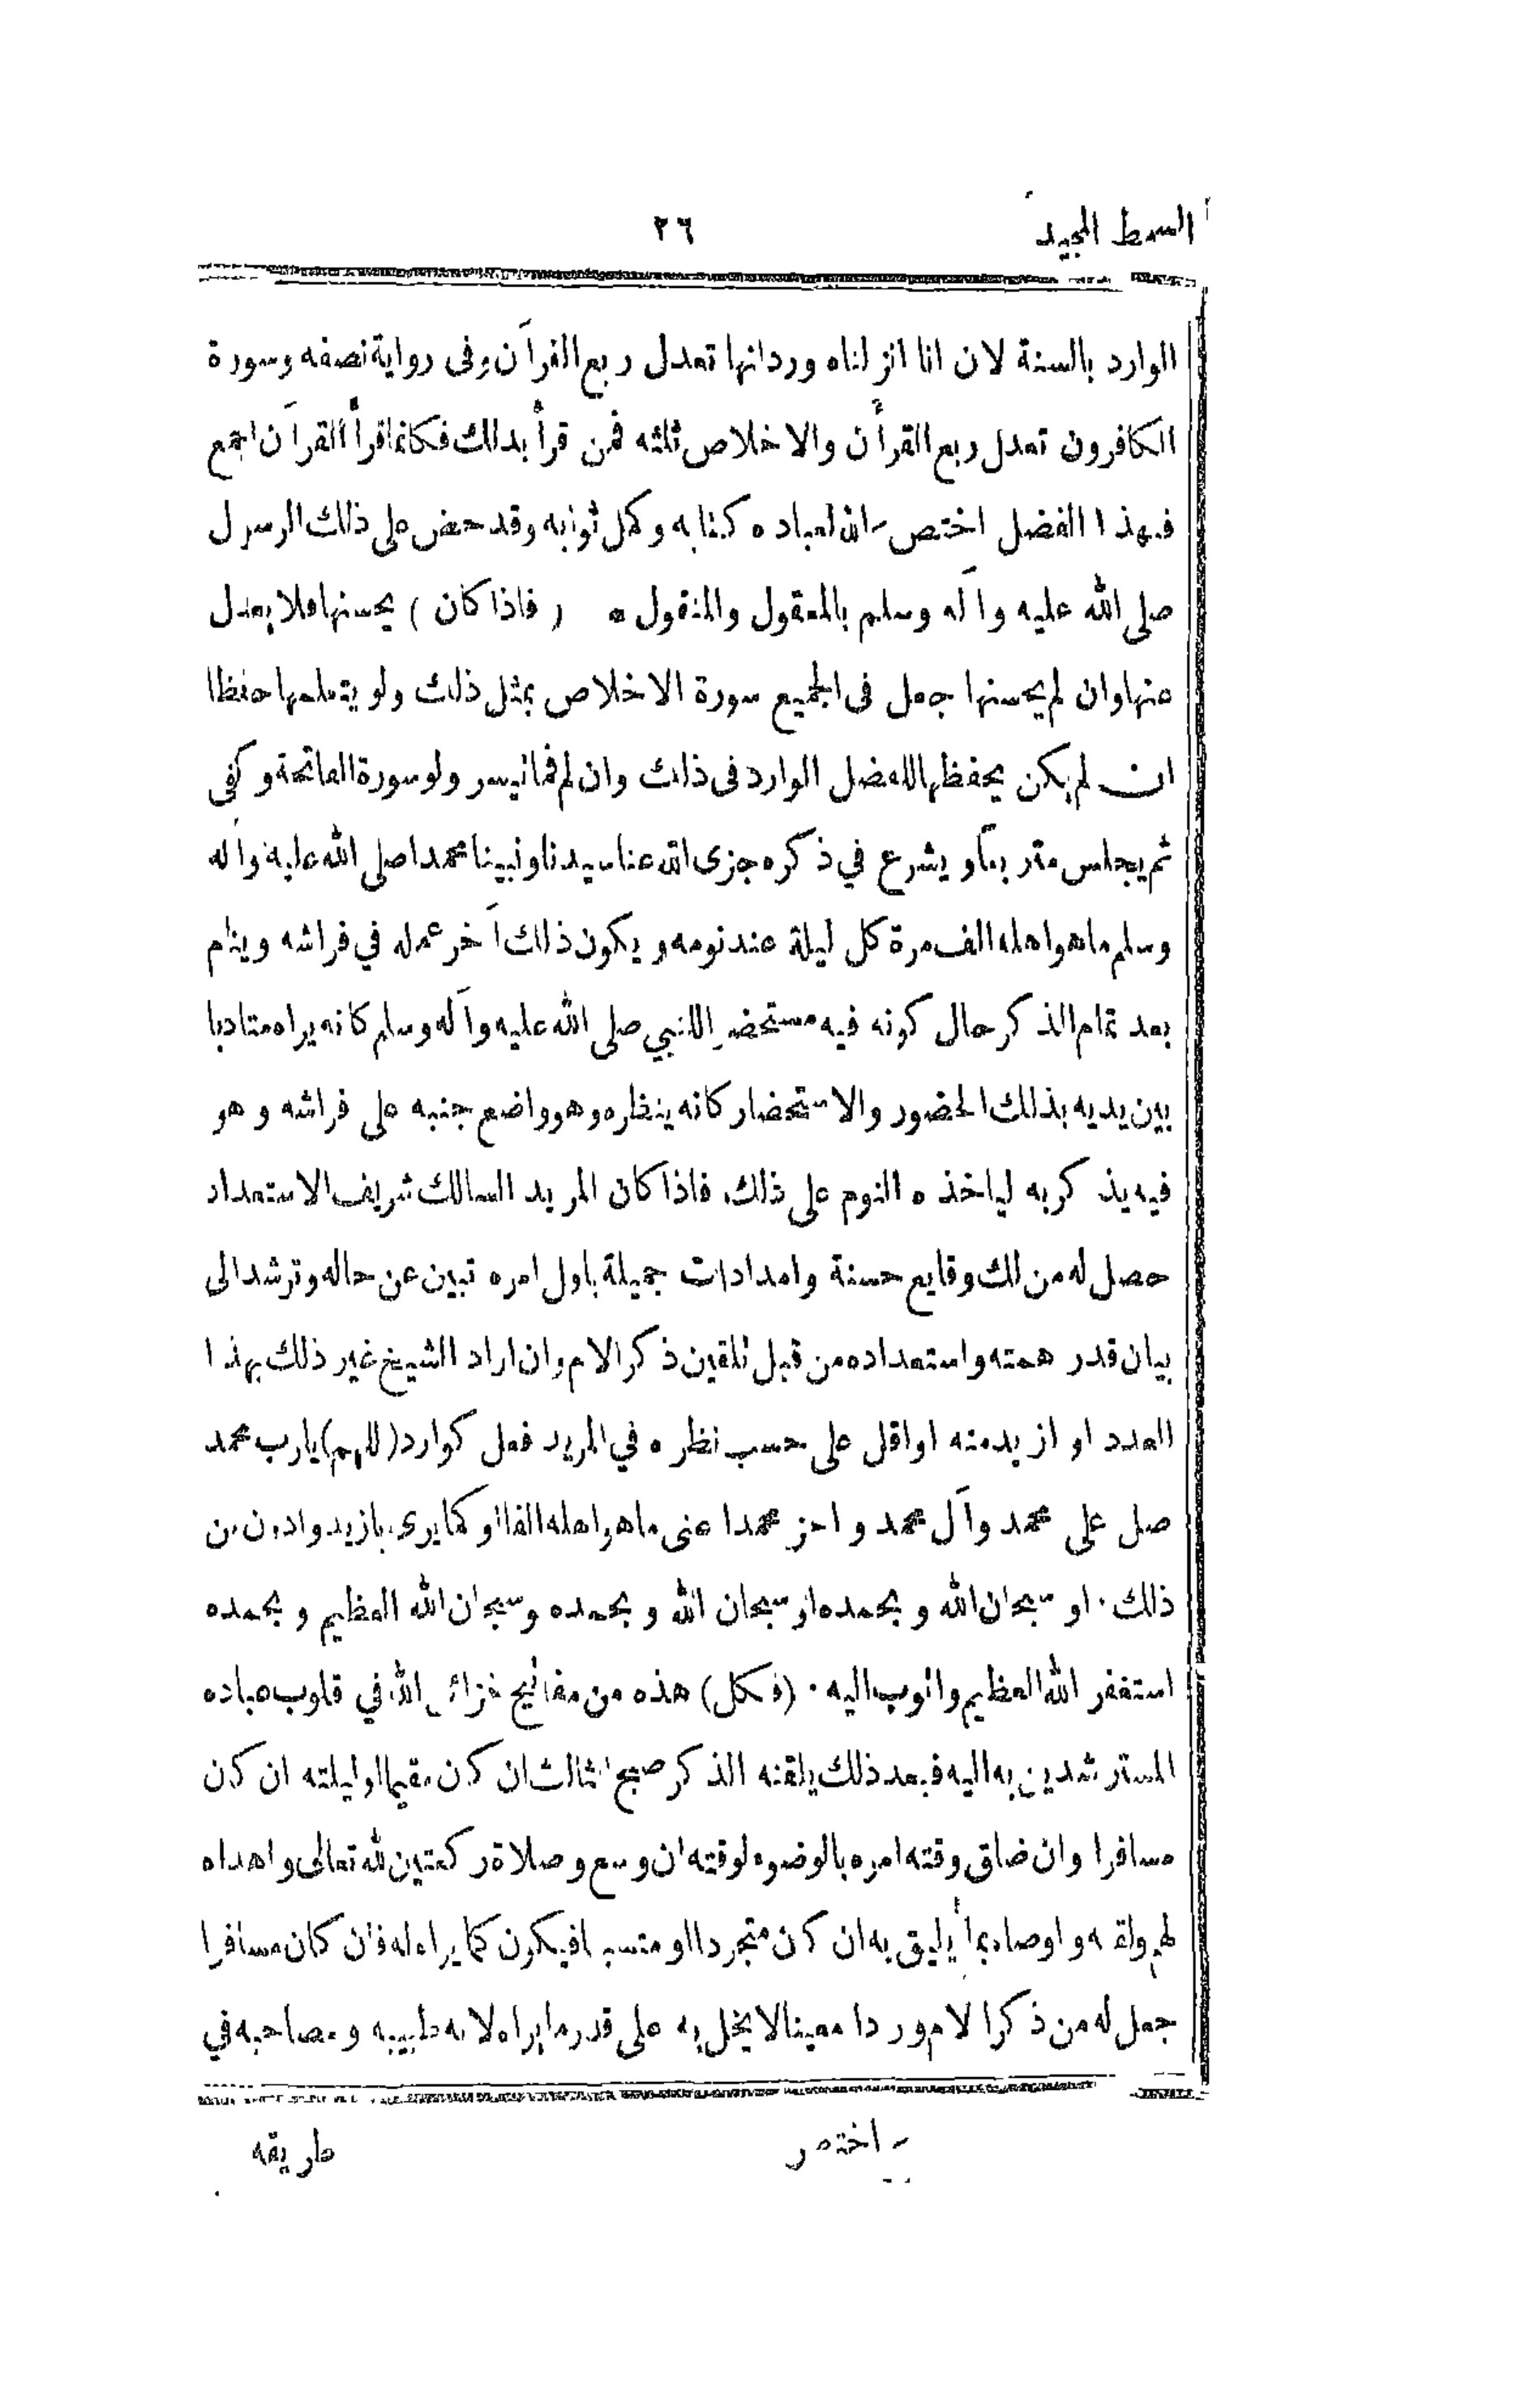 السمط المجيد ٢٦
الوارد بالسنة لان انا انزلناه وردانها تعدل ربع القرآن وفى رواية نصفه وسورة
الكافرون تعدل ربع القرأن والاخلاص ثلثه فمن قرأ بذلك فكانما قرأ القرآن اجمع
فبهذا الفضل اختص الله لعباده كتابه وكمل ثوابه وقد حض على ذلك الرسول
صلى الله عليه وآله وسلم بالمعقول والمنقول ه (فاذا كان) يحسنها فلا يعدل
عنها وان لم يحسنها جعل فى الجميع سورة الاخلاص بمثل ذلك ولو يتعلمها حفظا
ان لم يكن يحفظها للفضل الوارد فى ذلك وان لم فما تيسر ولو سورة الفاتحة وكفى
ثم يجلس متربعا و يشرع في ذكره جزى الله عنا سيدنا ونبينا محمدا صلى الله عليه وآله
وسلم ما هو اهله الف مرة كل ليلة عند نومه و يكون ذلك آخر عمله في فراشه وينام
بعد تمام الذكر حال كونه فيه مستحضرا للنبي صلى الله عليه وآله وسلم كانه يراه متادبا
بين يديه بذلك الحضور والاستحضار كانه ينظره وهو واضع جنبه على فراشه وهو
فيه يذكر به لياخذه النوم على ذلك، فاذا كان المريد السالك شريف الاستعداد
حصل له من لك وقايع حسنة وامدادات جميلة باول امره تبين عن حاله وترشد الى
بيان قدر همته واستعداده من قبل تلقين ذكر الام وان اراد الشيخ غير ذلك بهذا
العدد او ازيد منه او اقل على حسب نظره في المريد فعل كوارد (للهم) يارب محمد
صل على محمد وآل محمد واجز محمدا عنى ما هو اهله الفا او كما يرى بازيد وادون من
ذلك · او سبحان الله و بحمده او سبحان الله و بحمده وسبحان الله العظيم و بحمده
استغفر الله العظيم واتوب اليه · (فكل) هذه من مفاتيح خزائن الله في قلوب عباده
المسترشدين به اليه فبعد ذلك يلقنه الذكر صبح الثالث ان كان مقيما او ليلته ان كان
مسافرا وان ضاق وقته امره بالوضوء لوقته ان وسع وصلاة ركعتين لله تعالى واهداه
لهم ولقنه واوصاه بما يليق به ان كان متجردا او متسببا فيكون كما يراه له فان كان مسافرا
جعل له من ذكر الام وردا معينا لا يخل به على قدر ما يراه لانه طبيبه ومصاحبه في
طريقه